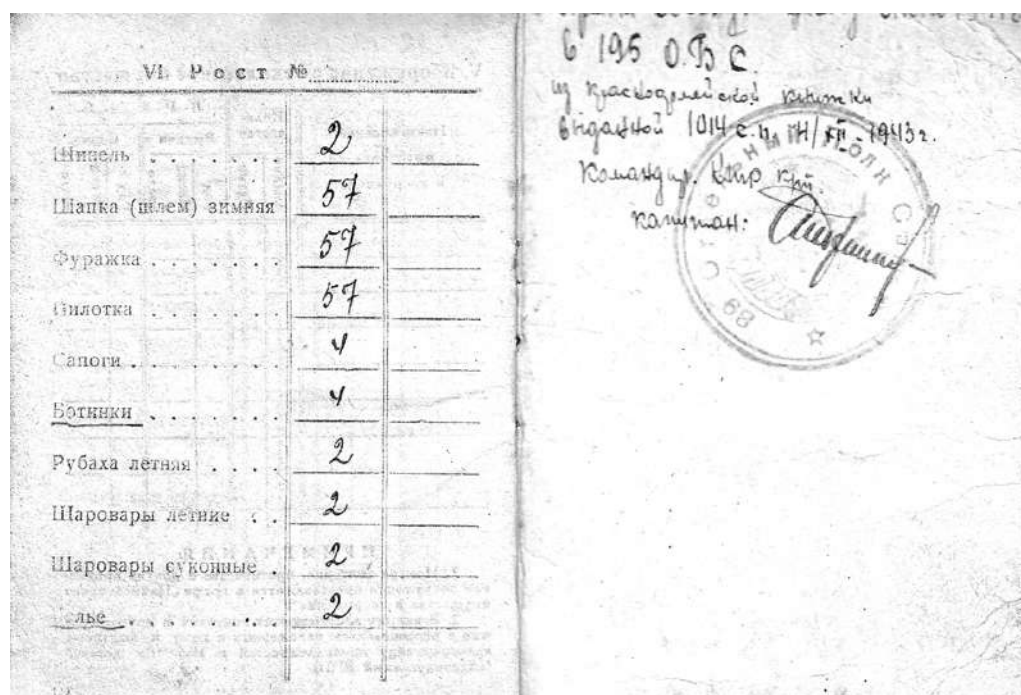 VI. Рост №
Шинель . . . . . . 2
Шапка (шлем) зимняя 57
Фуражка . . . . . . 57
Пилотка . . . . . . 57
Сапоги . . . . . . 4
Ботинки . . . . . . 4
Рубаха летняя . . . . 2
Шаровары летние . . 2
Шаровары суконные . 2
елье . . . . . . . 2
в 195 О.Б С.
из красноармейской книжки
выданной 1014 с.п. 14/XII-1943г.
Командир
капитан:
ПОЛК
68